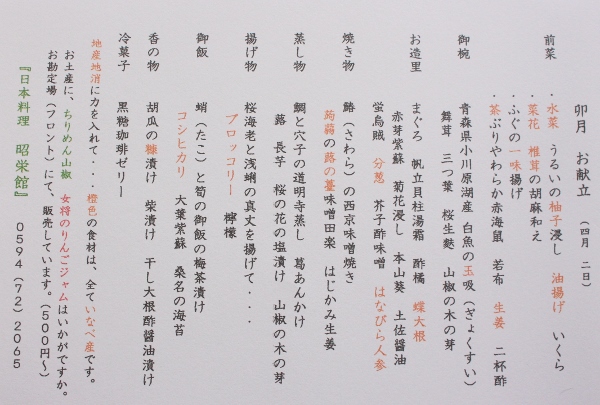 卯月　お献立　（四月　二日）
前菜　・水菜　うるいの柚子浸し　油揚げ　いくら
・菜花　椎茸の胡麻和え
・ふぐの一味揚げ
・茶ぶりやわらか赤海鼠　若布　生姜　二杯酢
御椀　青森県小川原湖産　白魚の玉吸（ぎょくすい）
舞茸　三つ葉　桜生麩　山椒の木の芽
お造里　まぐろ　帆立貝柱湯霜　酢橘　蝶大根
赤芽紫蘇　菊花浸し　本山葵　土佐醤油
蛍烏賊　分葱　芥子酢味噌　はなびら人参
焼き物　鰆（さわら）の西京味噌焼き
蒟蒻の蕗の薹味噌田楽　はじかみ生姜
蒸し物　鯛と穴子の道明寺蒸し　葛あんかけ
蕗　長芋　桜の花の塩漬け　山椒の木の芽
揚げ物　桜海老と浅蜊の真丈を揚げて・・・
ブロッコリー　檸檬
御飯　蛸（たこ）と筍の御飯の梅茶漬け
コシヒカリ　大葉紫蘇　桑名の海苔
香の物　胡瓜の糠漬け　柴漬け　干し大根酢醤油漬け
冷菓子　黒糖珈琲ゼリー
地産地消に力を入れて・・・橙色の食材は、全ていなべ産です。
お土産に、ちりめん山椒　女将のりんごジャムはいかがですか。
お勘定場（フロント）にて、販売しています。（５００円～）
『日本料理　昭栄館』　０５９４（７２）２０６５